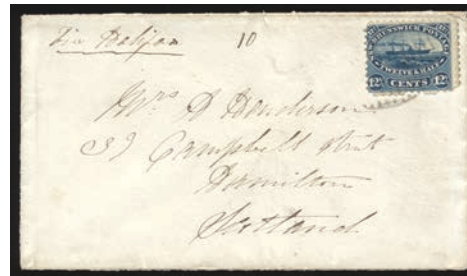 Via Halifax 10
NEW BRUNSWICK POSTAGE
TWELVE & HALF
12½ CENTS 12½
Mrs D Henderson
39 Campbell Street
Hamilton
Scotland